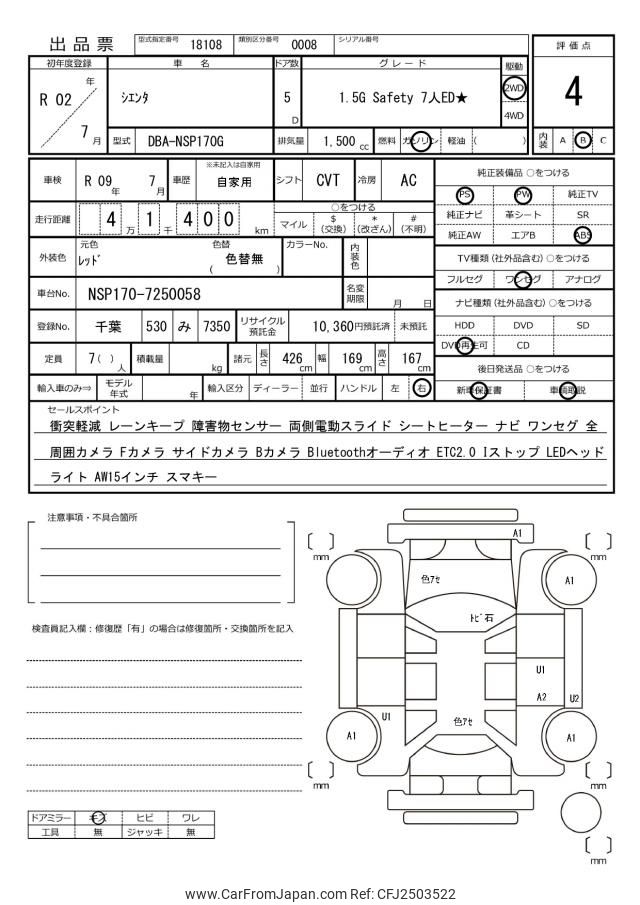 出品票 型式指定番号 18108 類別区分番号 0008 シリアル番号
評価点
4
内装 A B C
初年度登録 車名 ドア数 グレード 駆動
R 02 年 7 月
シエンタ 5 D 1.5G Safety 7人ED★ 2WD 4WD
型式 DBA-NSP170G 排気量 1,500 cc 燃料 ガソリン 軽油 ( )
車検 R 09 年 7 月 車歴 ※未記入は自家用 自家用 シフト CVT 冷房 AC
走行距離 4 万 1 千 4 0 0 km
○をつける
マイル $ (交換) * (改ざん) # (不明)
外装色 元色 レッド 色替 ( 色替無 ) カラーNo. 内装色
車台No. NSP170-7250058 名変期限 月 日
登録No. 千葉 530 み 7350 リサイクル預託金 10,360円預託済 未預託
定員 7( ) 人 積載量 kg 諸元 長さ 426 cm 幅 169 cm 高さ 167 cm
輸入車のみ⇒ モデル年式 年 輸入区分 ディーラー 並行 ハンドル 左 右
純正装備品 ○をつける
PS PW 純正TV
純正ナビ 革シート SR
純正AW エアB ABS
TV種類 (社外品含む) ○をつける
フルセグ ワンセグ アナログ
ナビ種類 (社外品含む) ○をつける
HDD DVD SD
DVD再生可 CD
後日発送品 ○をつける
新車保証書 車輌取説
セールスポイント
衝突軽減 レーンキープ 障害物センサー 両側電動スライド シートヒーター ナビ ワンセグ 全
周囲カメラ Fカメラ サイドカメラ Bカメラ Bluetoothオーディオ ETC2.0 Iストップ LEDヘッド
ライト AW15インチ スマキー
注意事項・不具合箇所
検査員記入欄:修復歴「有」の場合は修復箇所・交換箇所を記入
ドアミラー キズ ヒビ ワレ
工具 無 ジャッキ 無
A1
mm
mm
色アセ
A1
トビ石
U1
A2
U2
U1
色アセ
A1
A1
mm
mm
mm
www.CarFromJapan.com Ref: CFJ2503522